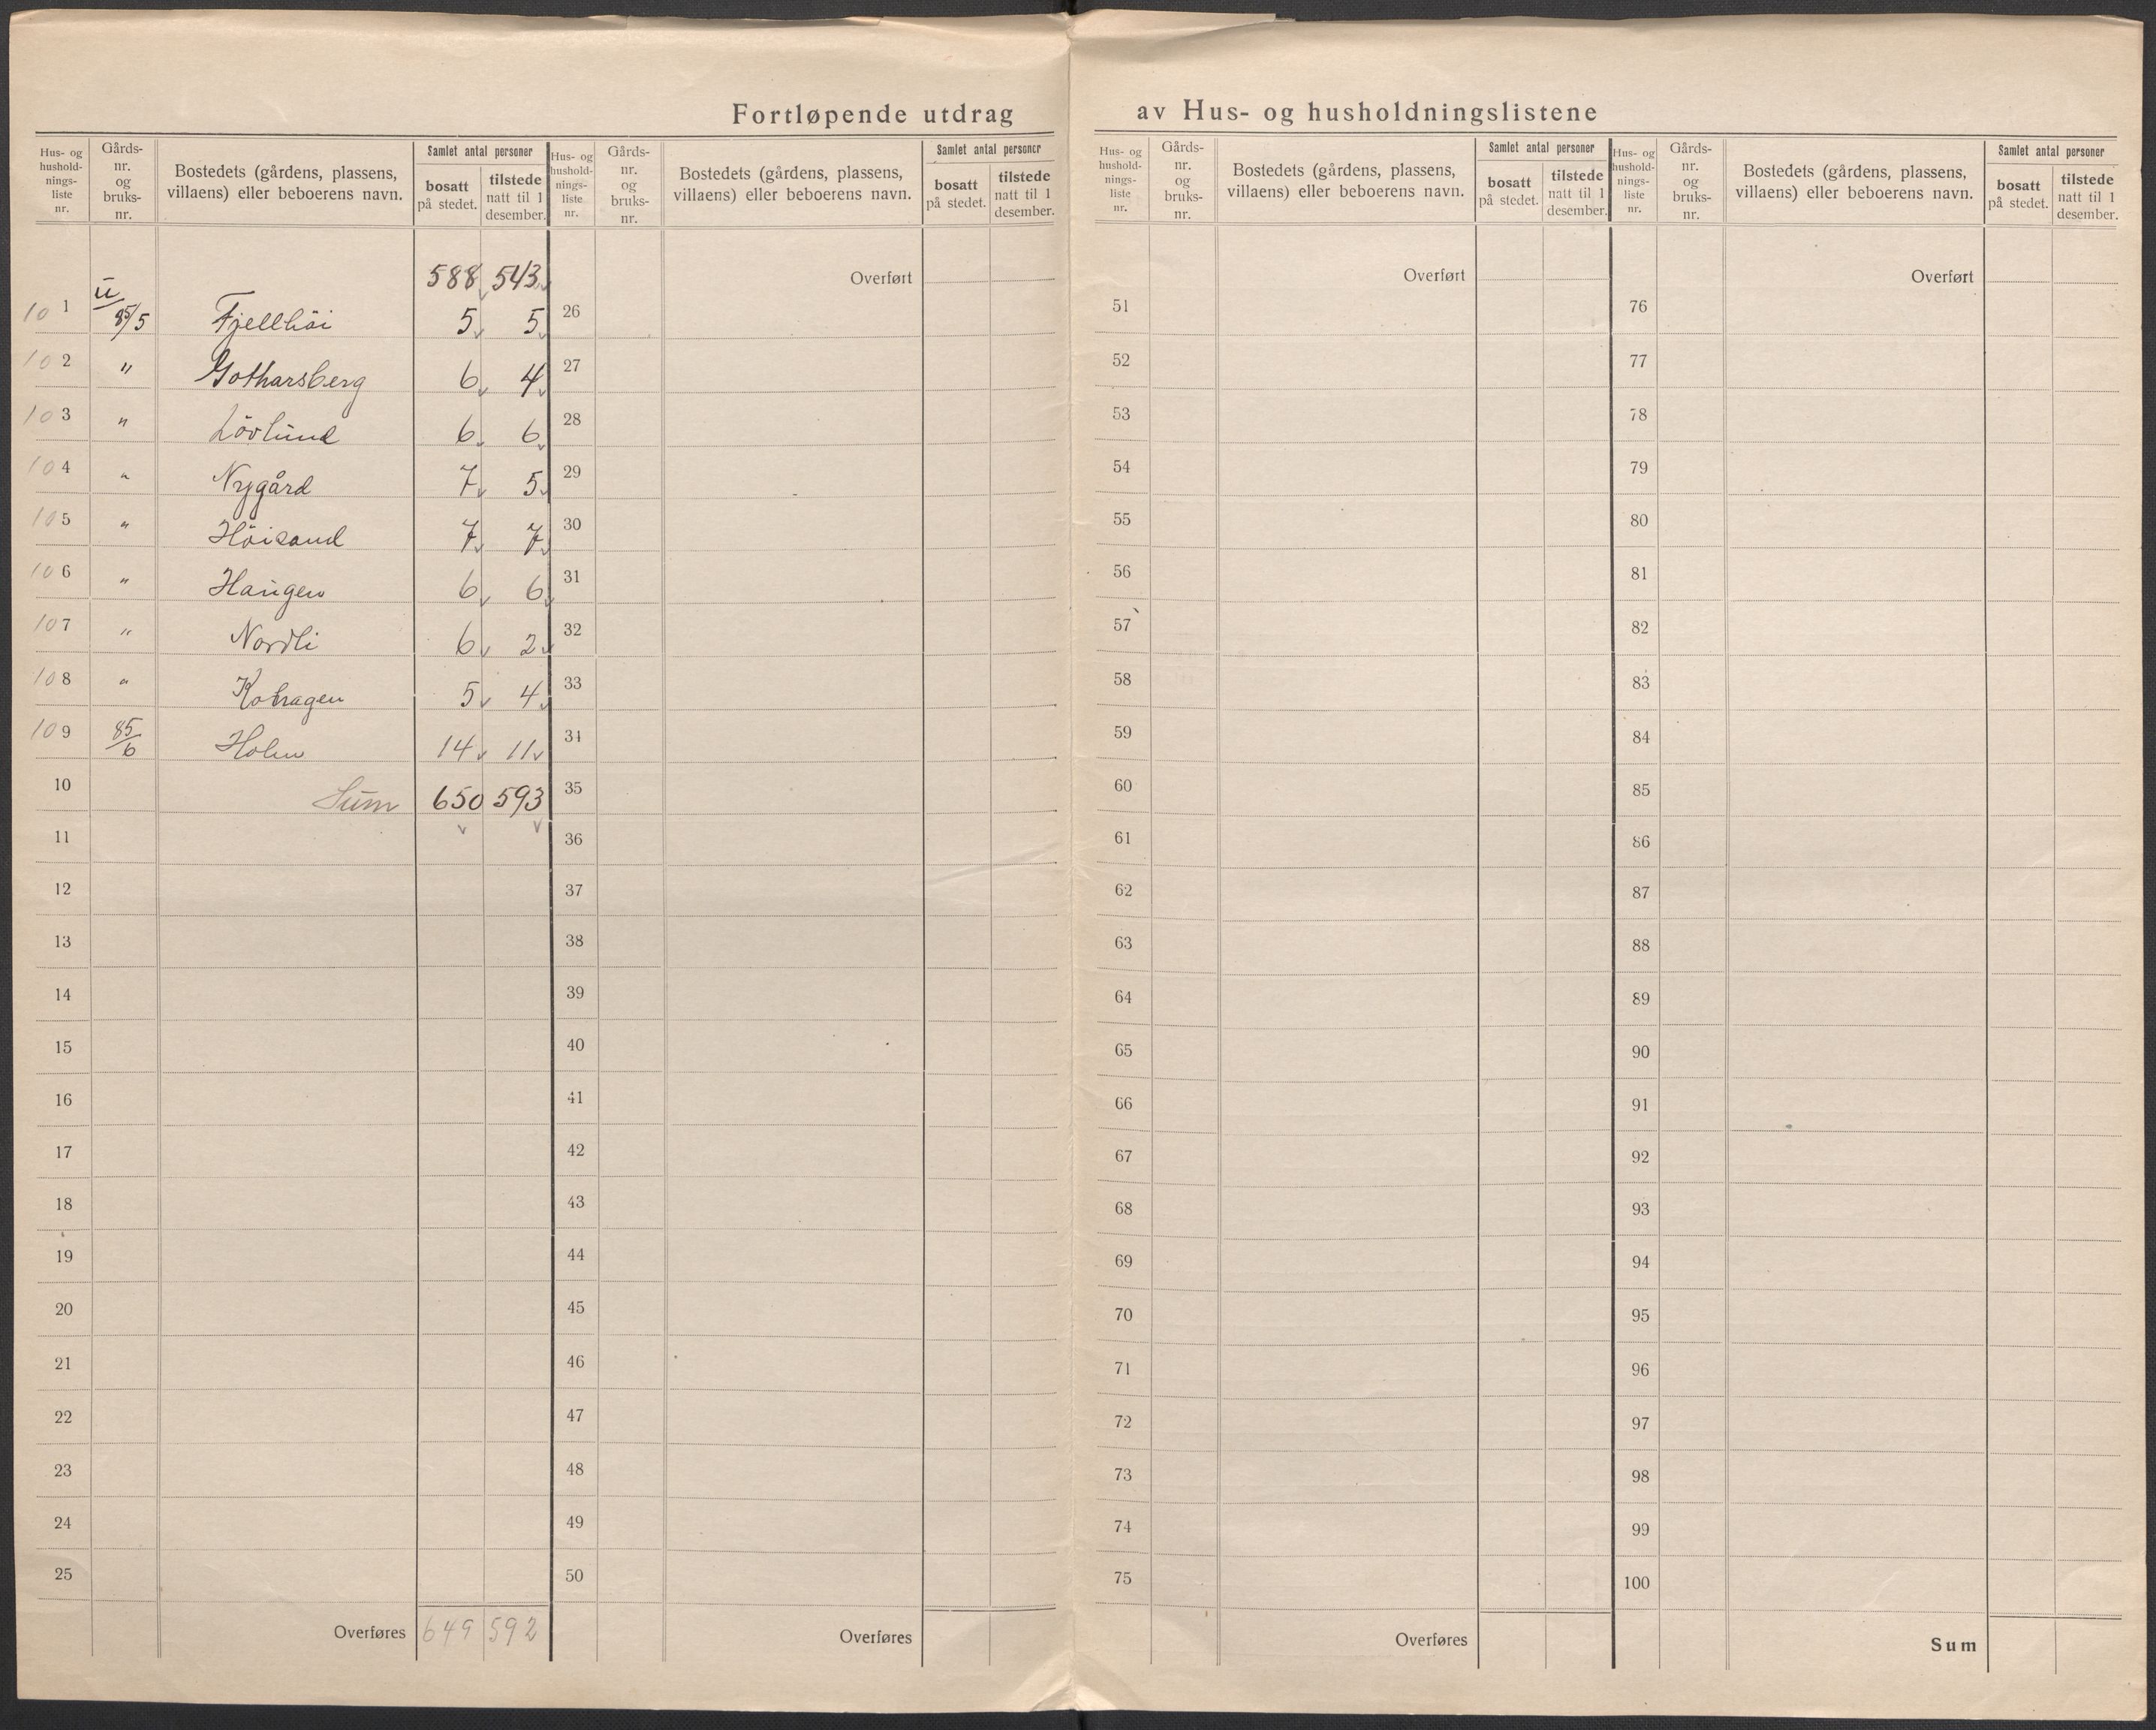 Fortløpende utdrag av Hus- og husholdningslistene
Hus- og hushold-nings-liste nr. | Gårds-nr. og bruks-nr. | Bostedets (gårdens, plassens, villaens) eller beboerens navn. | Samlet antal personer | bosatt på stedet. | tilstede natt til 1 desember.
588 543
101 85/5 Fjellhöi 5 5
102 " Gotharsberg 6 4
103 " Lövlund 6 6
104 " Nygård 7 5
105 " Höisand 7 7
106 " Haugen 6 6
107 " Nordli 6 2
108 " 5 4
109 85/6 Holm 14 11
10 Sum 650 593
11
12
13
14
15
16
17
18
19
20
21
22
23
24
25
Overføres 649 592
Hus- og hushold-nings-liste nr. | Gårds-nr. og bruks-nr. | Bostedets (gårdens, plassens, villaens) eller beboerens navn. | Samlet antal personer | bosatt på stedet. | tilstede natt til 1 desember.
Overført
26
27
28
29
30
31
32
33
34
35
36
37
38
39
40
41
42
43
44
45
46
47
48
49
50
Overføres
Hus- og hushold-nings-liste nr. | Gårds-nr. og bruks-nr. | Bostedets (gårdens, plassens, villaens) eller beboerens navn. | Samlet antal personer | bosatt på stedet. | tilstede natt til 1 desember.
Overført
51
52
53
54
55
56
57
58
59
60
61
62
63
64
65
66
67
68
69
70
71
72
73
74
75
Overføres
Hus- og hushold-nings-liste nr. | Gårds-nr. og bruks-nr. | Bostedets (gårdens, plassens, villaens) eller beboerens navn. | Samlet antal personer | bosatt på stedet. | tilstede natt til 1 desember.
Overført
76
77
78
79
80
81
82
83
84
85
86
87
88
89
90
91
92
93
94
95
96
97
98
99
100
Sum